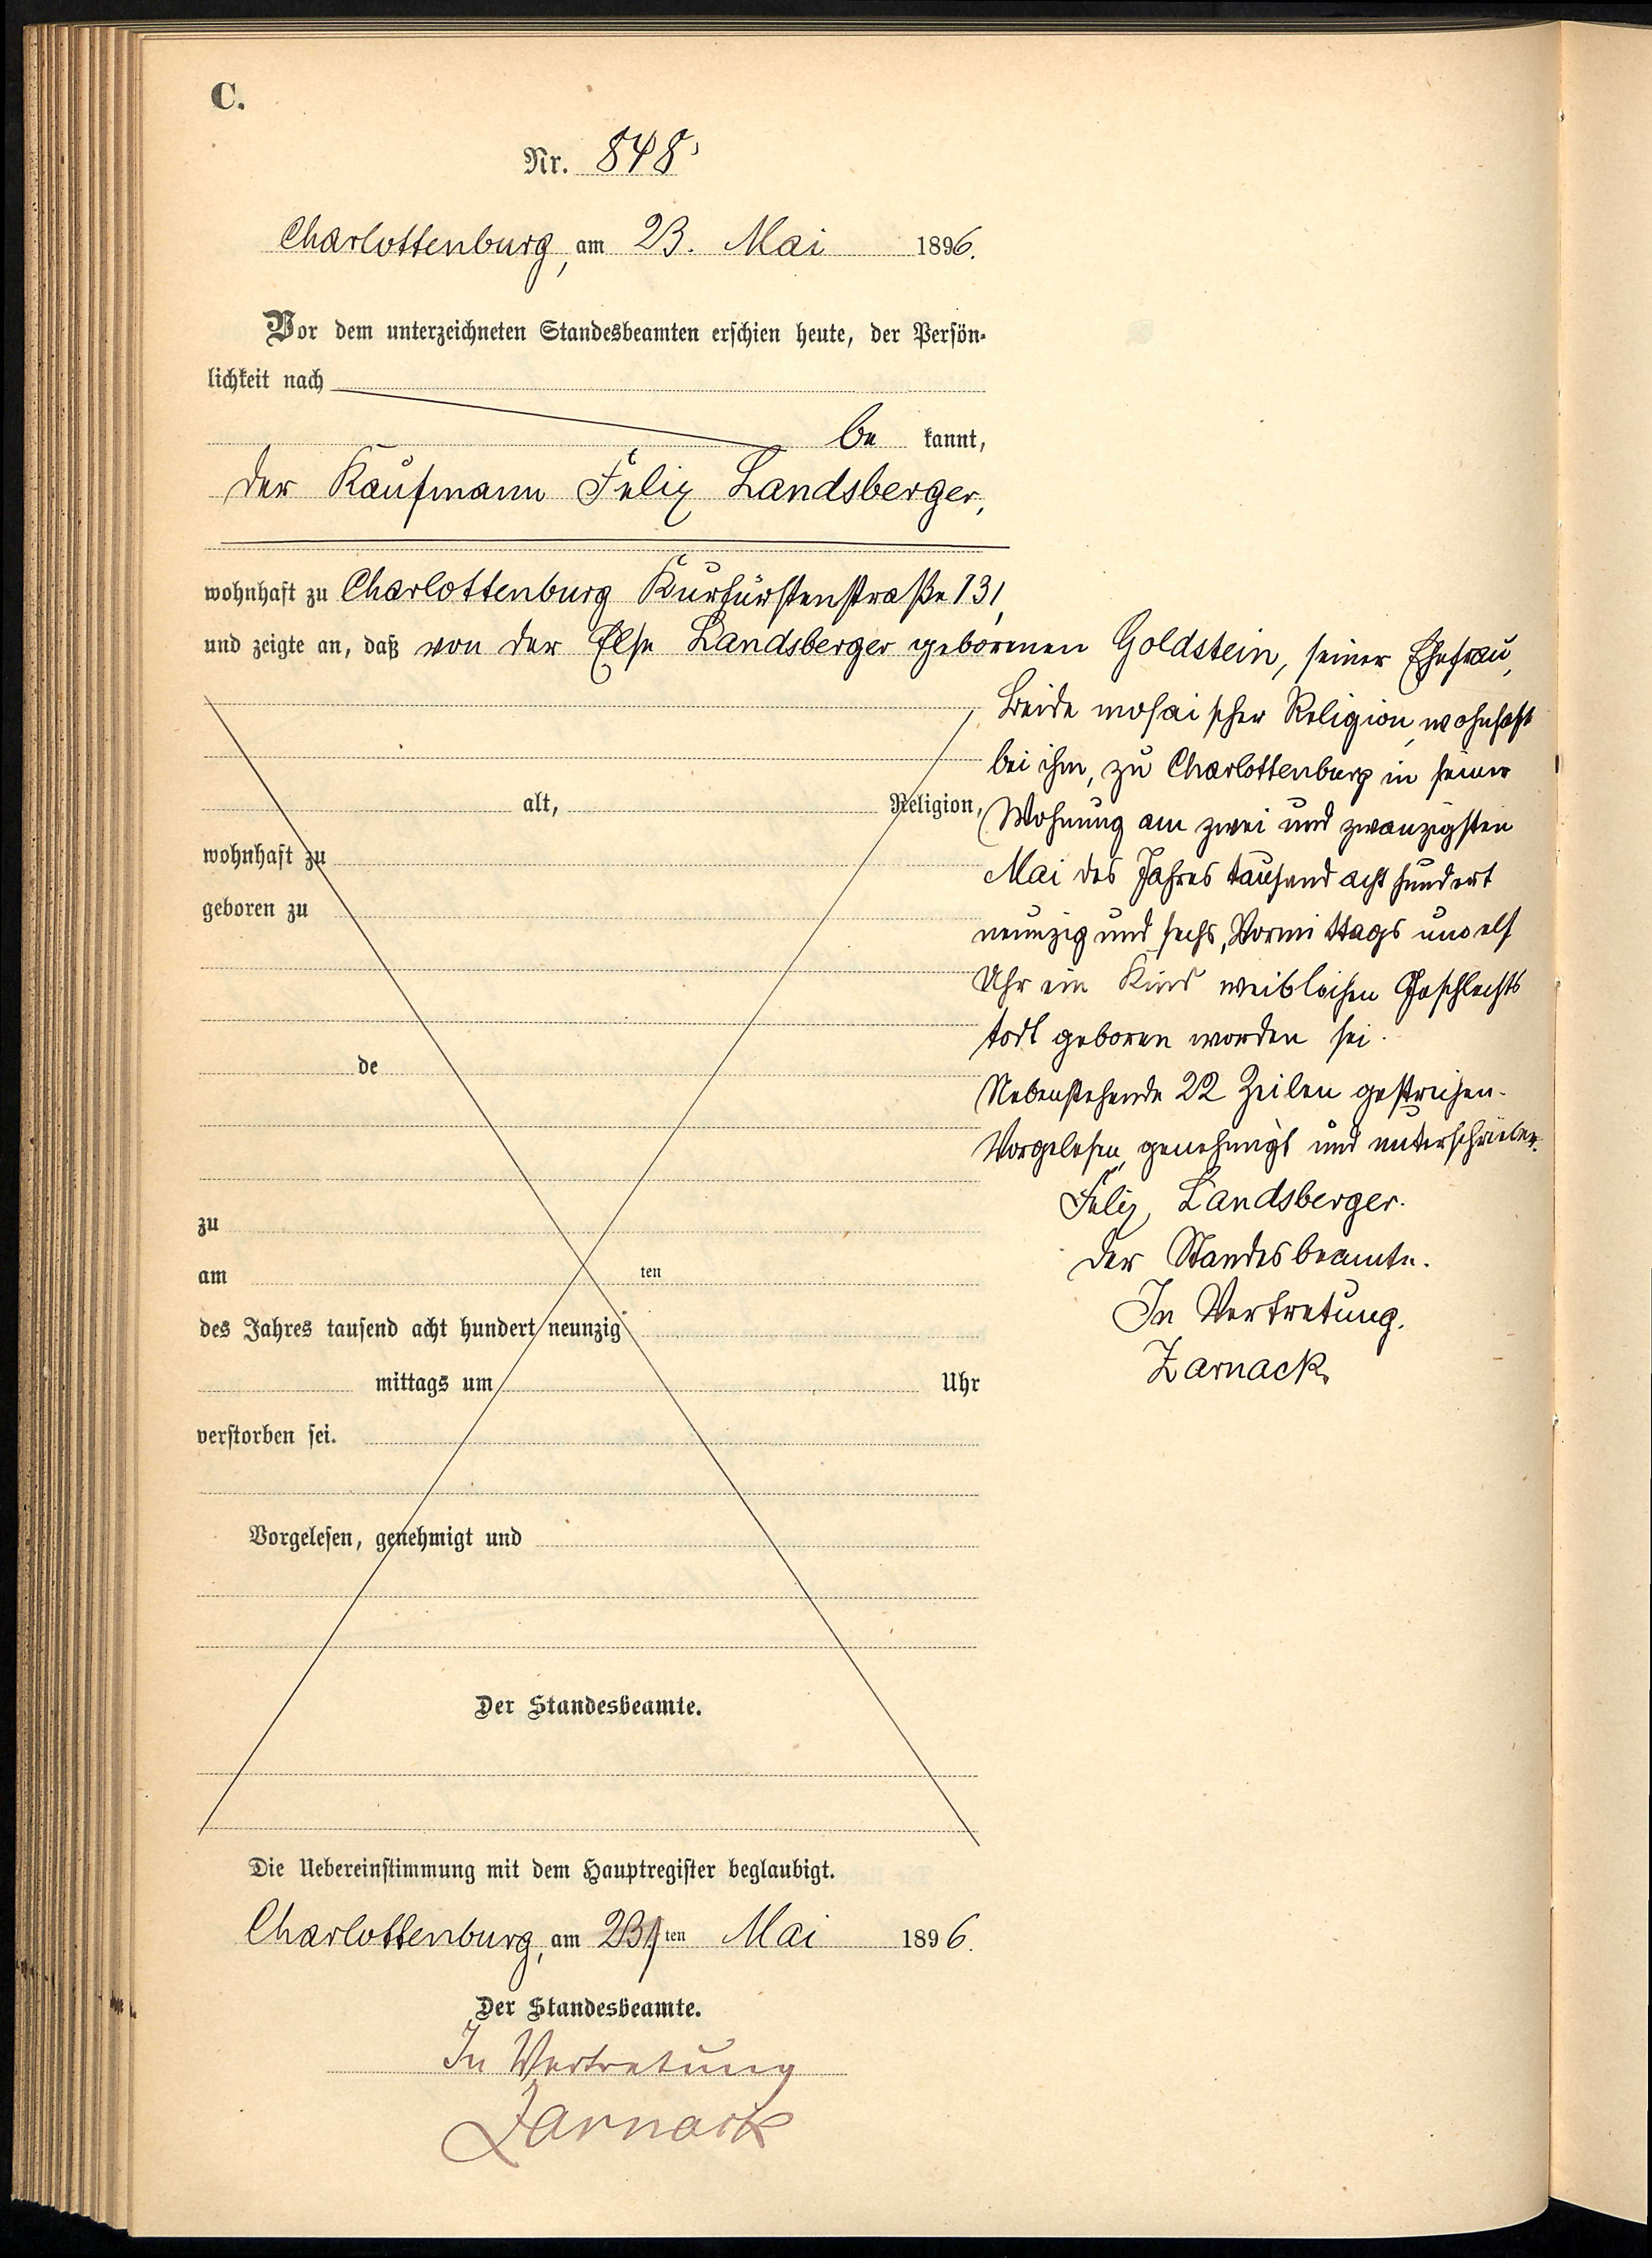 C.
Nr. 848
Charlottenburg, am 23. Mai 1896.
Vor dem unterzeichneten Standesbeamten erschien heute, der Persön-
lichkeit nach
be kannt,
der Kaufmann Felix Landsberger,
wohnhaft zu Charlottenburg Kurfürstenstraße 131,
und zeigte an, daß von der Else Landsberger geborenen Goldstein, seiner Ehefrau,
Beide mosaischer Religion, wohnhaft
bei ihm, zu Charlottenburg in seiner
Wohnung am zwei und zwanzigsten
Mai des Jahres tausend acht hundert
neunzig und sechs, Vormittags um elf
Uhr ein Kind weiblichen Geschlechts
todt geboren worden sei.
Nebenstehende 22 Zeilen gestrichen.
Vorgelesen, genehmigt und unterschrieben.
Felix Landsberger.
Der Standesbeamte.
In Vertretung.
Zarnack.
alt, Religion,
wohnhaft zu
geboren zu
de
zu
am ten
des Jahres tausend acht hundert neunzig
mittags um Uhr
verstorben sei.
Vorgelesen, genehmigt und
Der Standesbeamte.
Die Uebereinstimmung mit dem Hauptregister beglaubigt.
Charlottenburg, am 23ten Mai 1896.
Der Standesbeamte.
In Vertretung
Zarnack